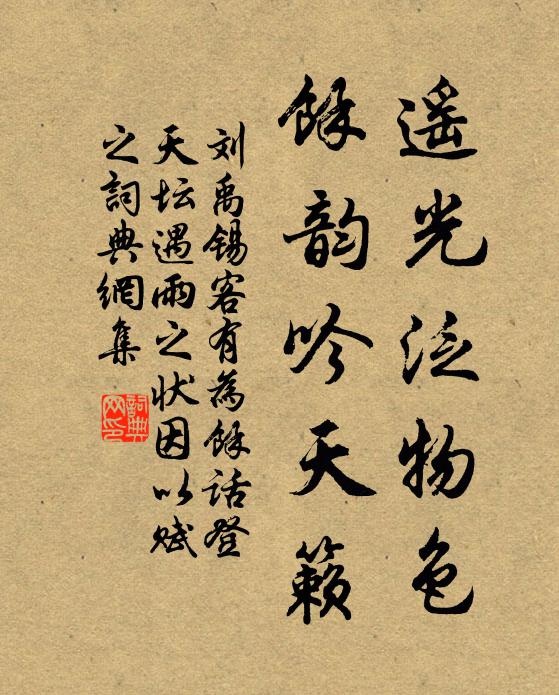 遥光泛物色
餘韵吟天籁
刘禹锡客有為餘話登
天坛遇雨之状因以赋
之詞典網集
詞典網印